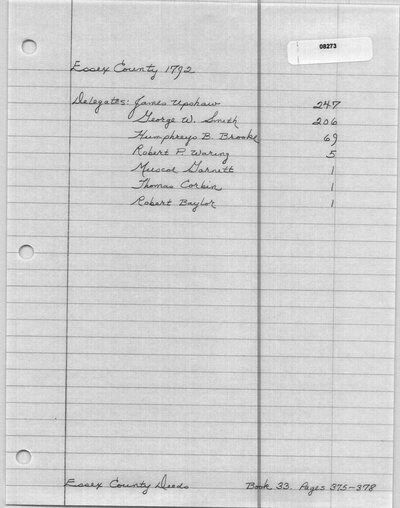 08273
Essex County 1792
Delegates: James Upshaw 247
George W. Smith 206
Humphreys B. Brooke 69
Robert P. Waring 5
Muscoe Garnett 1
Thomas Corbin 1
Robert Baylor 1
Essex County Deeds Book 33. Pages 375-378